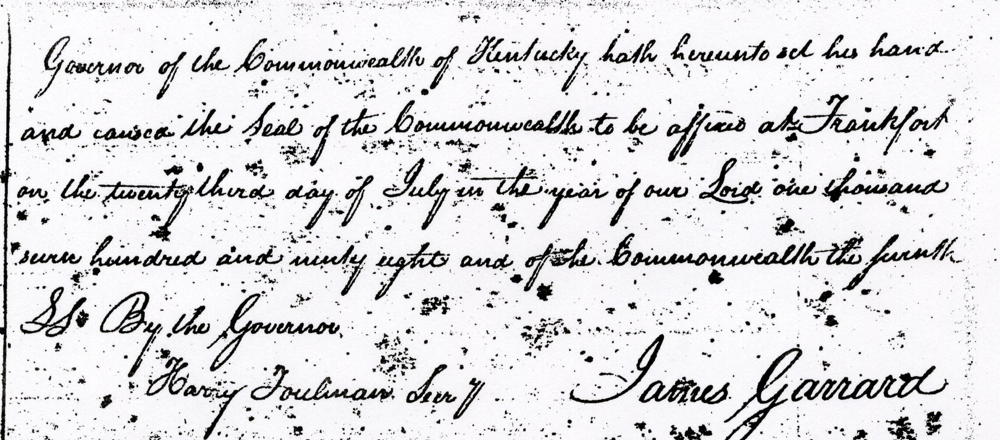 Governor of the Commonwealth of Kentucky hath hereunto set his hand
and caused the Seal of the Commonwealth to be affixed at Frankfort
on the twenty third day of July in the year of our Lord one thousand
seven hundred and ninety eight and of the Commonwealth the seventh
SS By the Governor
Harry Toulman Secry
James Garrard